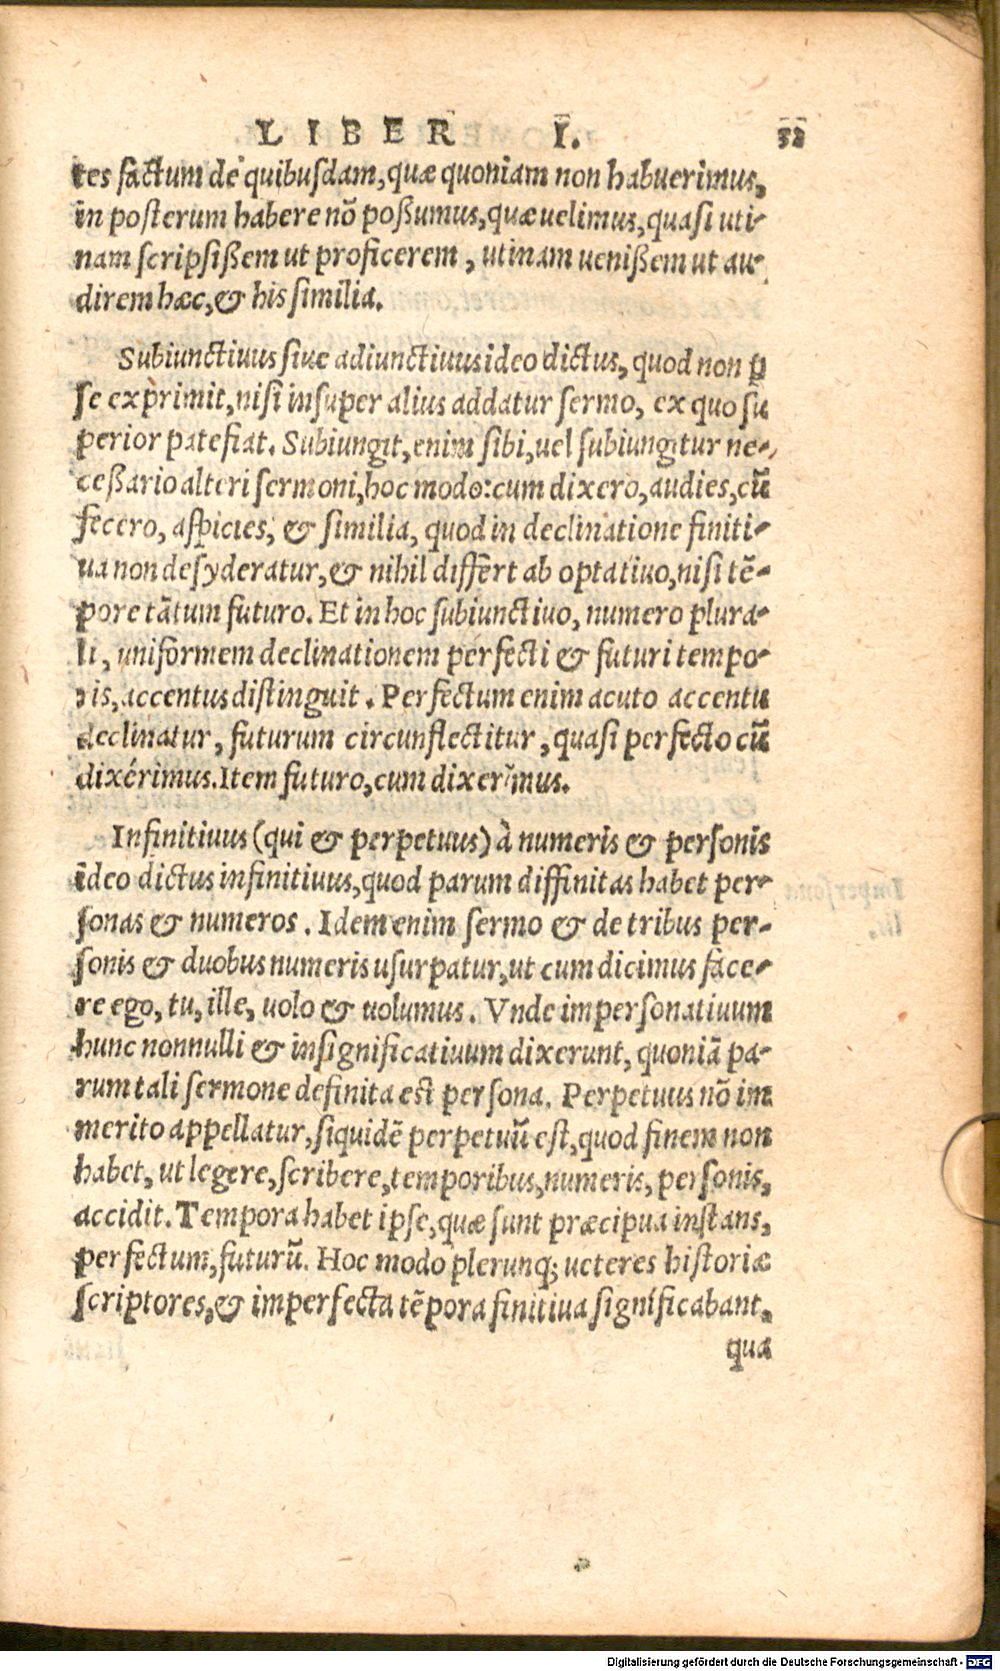 LIBER I. 52
tes factum de quibusdam, quæ quoniam non habuerimus,
in posterum habere nō poßumus, quæ uelimus, quasi uti-
nam scripsißem ut proficerem, utinam uenißem ut au-
direm hæc, & his similia.
Subiunctiuus siue adiunctiuus ideo dictus, quod non ꝑ
se exprimit, nisi insuper alius addatur sermo, ex quo su
perior patefiat. Subiungit, enim sibi, uel subiungitur ne-
ceßario alteri sermoni, hoc modo: cum dixero, audies, cū
fecero, aspicies, & similia, quod in declinatione finiti-
ua non desyderatur, & nihil differt ab optatiuo, nisi tē-
pore tātum futuro. Et in hoc subiunctiuo, numero plura-
li, uniformem declinationem perfecti & futuri tempo-
ris, accentus distinguit. Perfectum enim acuto accentu
declinatur, futurum circunflectitur, quasi perfecto cū
dixérimus. Item futuro, cum dixerîmus.
Infinitiuus (qui & perpetuus) à numeris & personis
ideo dictus infinitiuus, quod parum diffinitas habet per-
sonas & numeros. Idem enim sermo & de tribus per-
sonis & duobus numeris usurpatur, ut cum dicimus face-
re ego, tu, ille, uolo & uolumus. Vnde impersonatiuum
hunc nonnulli & insignificatiuum dixerunt, quoniā pa-
rum tali sermone definita est persona. Perpetuus nō im
merito appellatur, siquidē perpetuū est, quod finem non
habet, ut legere, scribere, temporibus, numeris, personis,
accidit. Tempora habet ipse, quæ sunt præcipua instans,
perfectum, futurū. Hoc modo plerunq; ueteres historiæ
scriptores, & imperfecta tēpora finitiua significabant,
qua
Digitalisierung gefördert durch die Deutsche Forschungsgemeinschaft - DFG